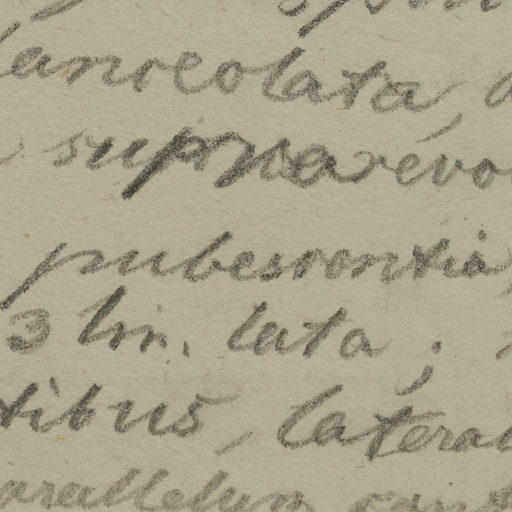 lanceolata,
supra revo
pubescentia,
3 lin. lata;
tibus, latera
arallelum